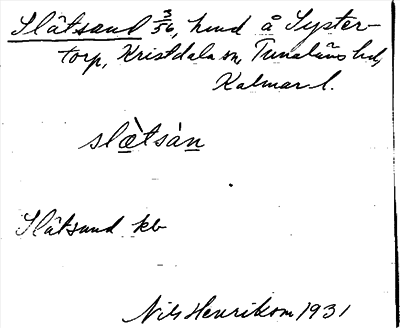 Slätsand 3/56, hmd å Syster-
torp, Kristdala sn, Tunaläns hd,
Kalmar l.
slæ̀tsàn
Slätsand kb
Nils Henrikson 1931